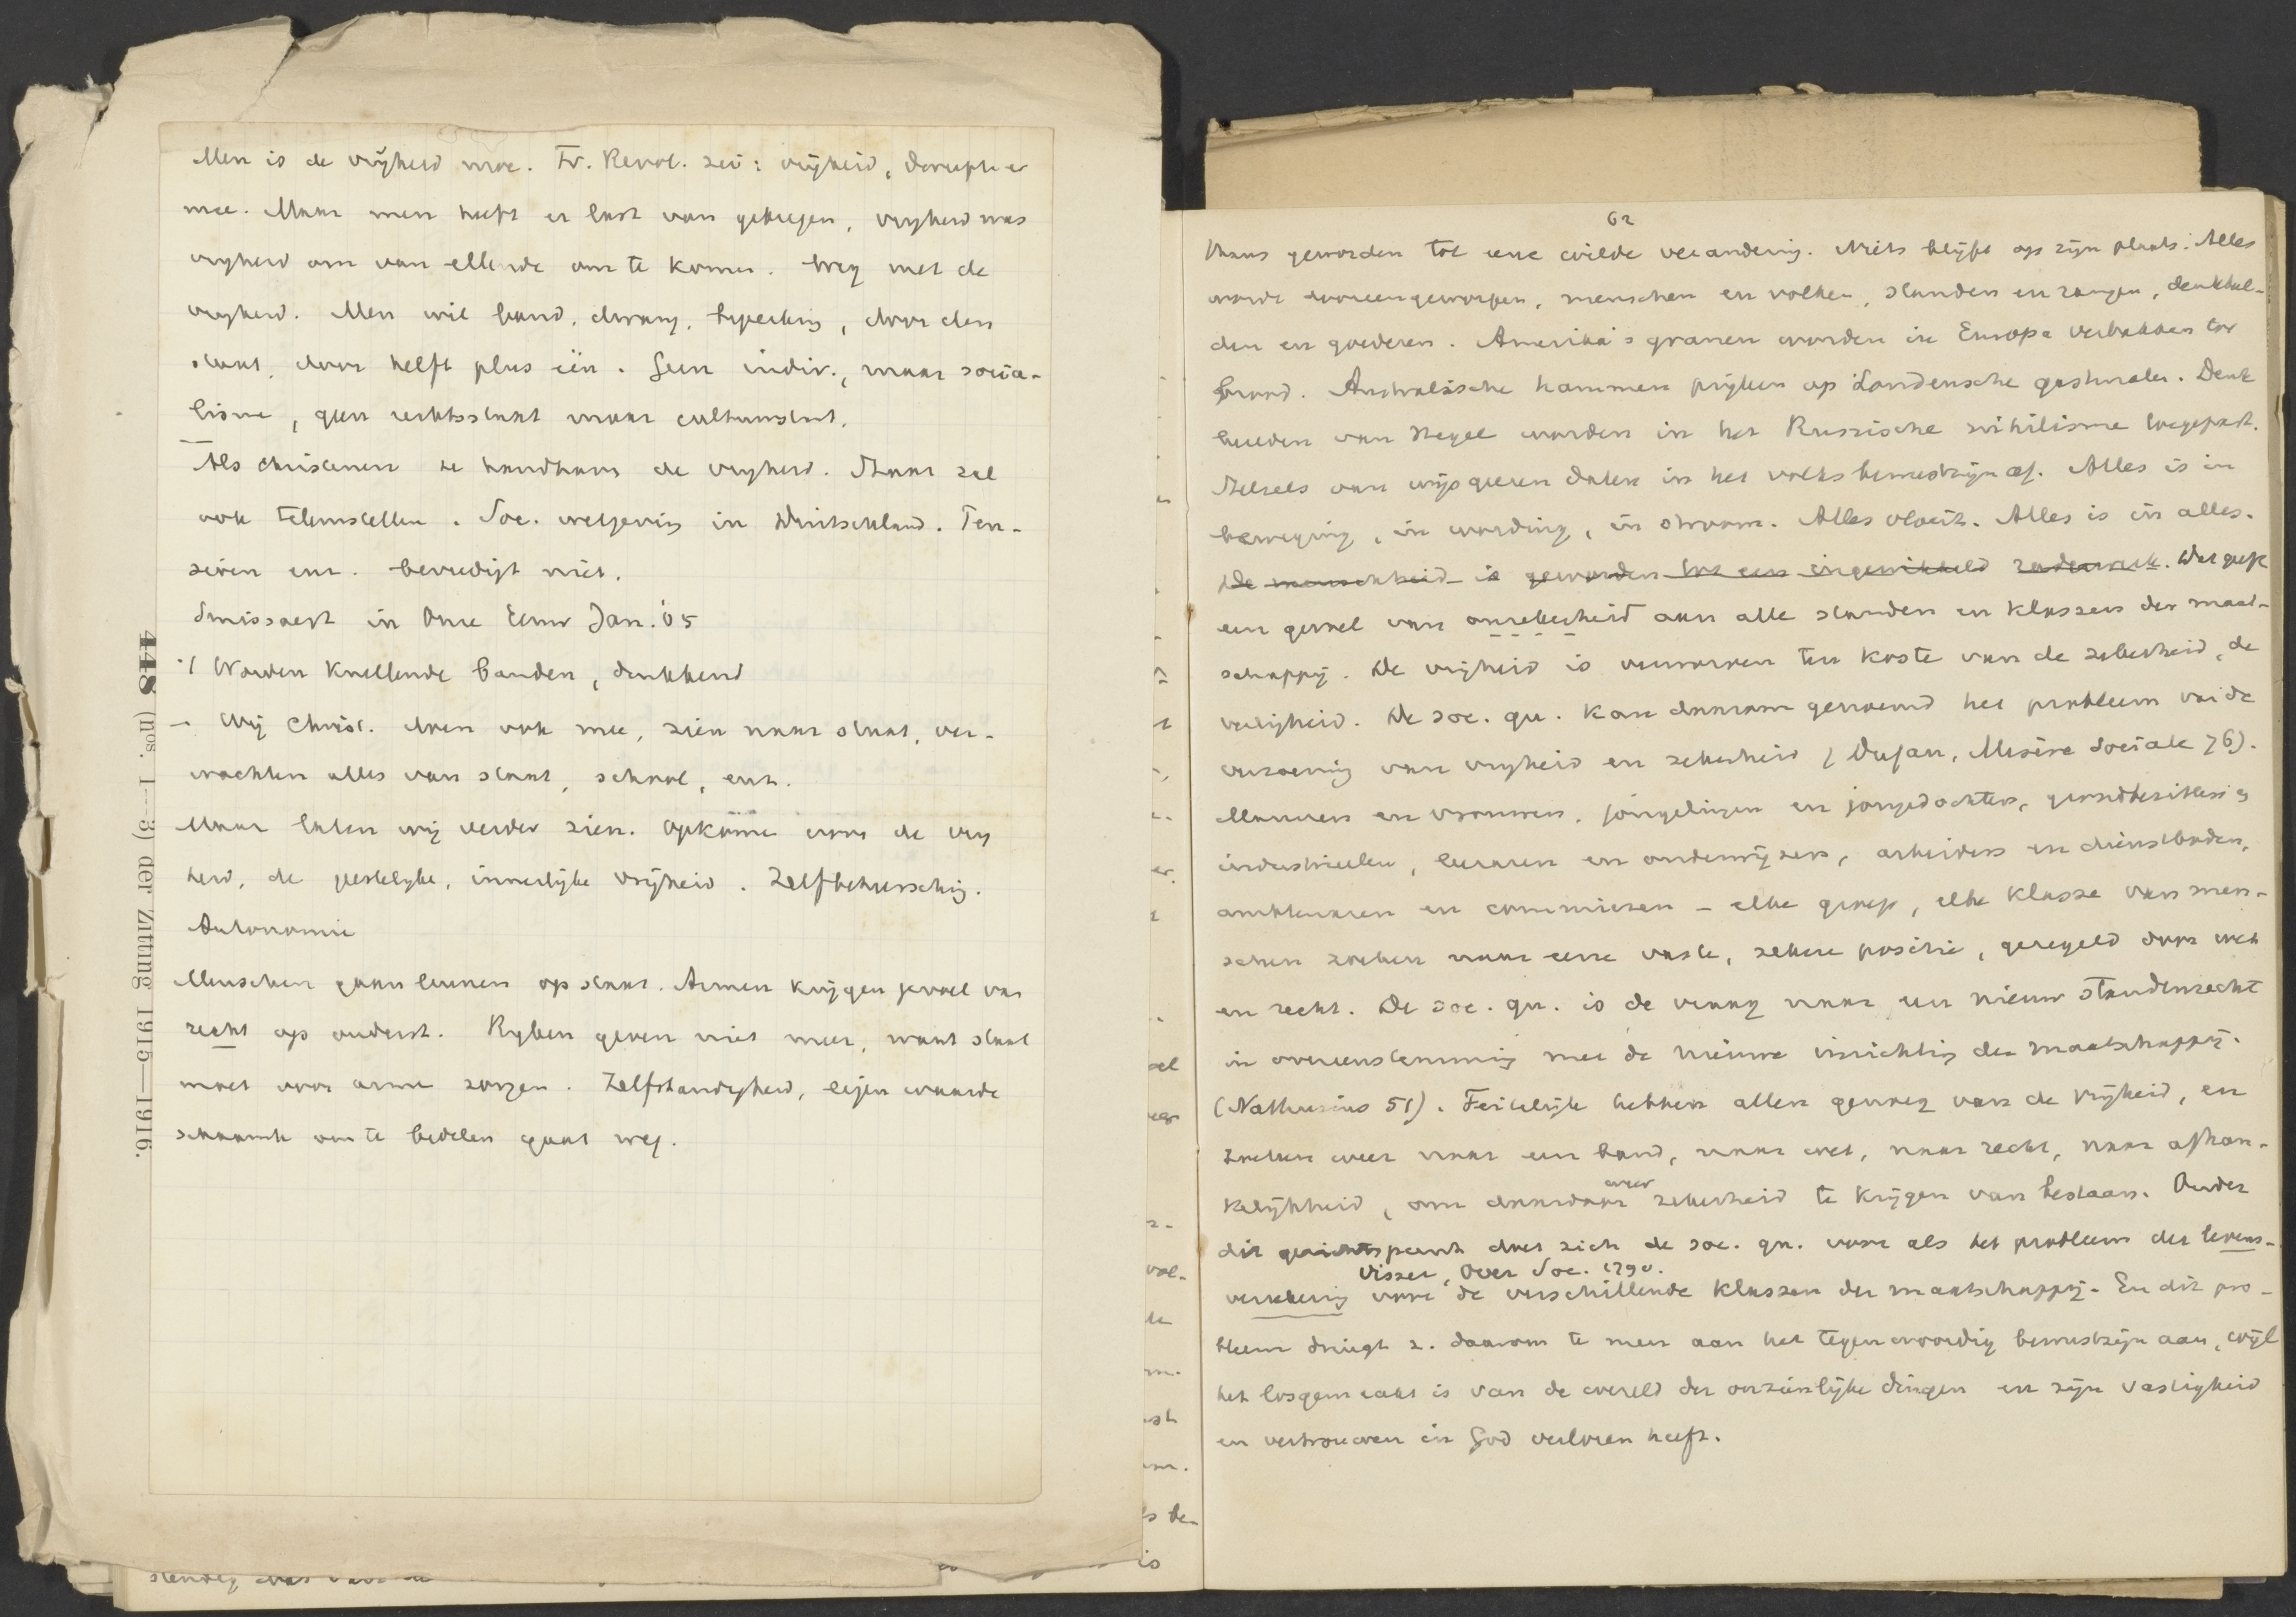 Men is de vrijheid moe. Fr. Revol. zei: vrijheid, dweepte er
mee. Maar men heeft er last van gekregen, vrijheid was
vrijheid om van ellende om te komen. Weg met de
vrijheid. Men wil band, dwang, beperking, door den
staat, door helft plus één. Geen indiv., maar socia-
lisme, geen rechtsstaat maar cultuurstaat.
Als christenen te handhaven de vrijheid. Staat zal
ook teleurstellen. Soc. wetgeving in Duitschland. Pen-
sioen enz. bevredigt niet.
Smissaert in Onze Eeuw Jan. '05
Worden knellende banden, drukkend
- Wij Christ. doen ook mee, zien naar staat, ver-
wachten alles van staat, school, enz.
Maar laten wij verder zien. Opkomen voor de vrij
heid, de geestelijke, innerlijke vrijheid. Zelfbeheersching.
Autonomie
Menschen gaan leunen op staat. Armen krijgen gevoel van
recht op onderst. Rijken geven niet meer, want staat
moet voor arme zorgen. Zelfstandigheid, eigen waarde
schaamte om te bedelen gaat weg.
448 (nos. 1—3) der Zitting 1915—1916.
62
thans geworden tot eene wilde verandering. Niets blijft op zijn plaats. Alles
wordt dooreengeworpen, menschen en volken, standen en rangen, denkbeel-
den en goederen. Amerika's granen worden in Europa verbakken tot
brood. Australische hammen prijken op Londensche gastmalen. Denk
beelden van Hegel worden in het Russische nihilisme toegepast.
Stelsels van wijsgeeren dalen in het volksbewustzijn af. Alles is in
beweging, in wording, in stroom. Alles vloeit. Alles is in alles.
De menschheid is geworden tot een ingewikkeld raderwerk. Dat geeft
een gevoel van onzekerheid aan alle standen en klassen der maat-
schappij. De vrijheid is verworven ten koste van de zekerheid, de
veiligheid. De soc. qu. kan daarom genoemd het probleem van de
verzoening van vrijheid en zekerheid (Dufau, Misère Sociale 76).
Mannen en vrouwen, jongelingen en jongedochters, grondbezitters en
industrieelen, leeraren en onderwijzers, arbeiders en dienstboden,
ambtenaren en commiezen - elke groep, elke klasse van men-
schen zoeken naar eene vaste, zekere positie, geregeld door wet
en recht. De soc. qu. is de vraag naar een nieuw standenrecht
in overeenstemming met de nieuwe inrichting der maatschappij.
(Nathusius 51). Feitelijk hebben allen genoeg van de vrijheid, en
zoeken weer naar een band, naar wet, naar recht, naar afhan-
kelijkheid, om daardoor weer zekerheid te krijgen van bestaan. Onder
dit gezichtspunt doet zich de soc. qu. voor als het probleem der levens-
Visser, Over Soc. 129v.
verzekering voor de verschillende klassen der maatschappij. En dit pro-
bleem dringt z. daarom te meer aan het tegenwoordig bewustzijn aan, wijl
het losgemaakt is van de wereld der onzienlijke dingen en zijn vastigheid
en vertrouwen in God verloren heeft.